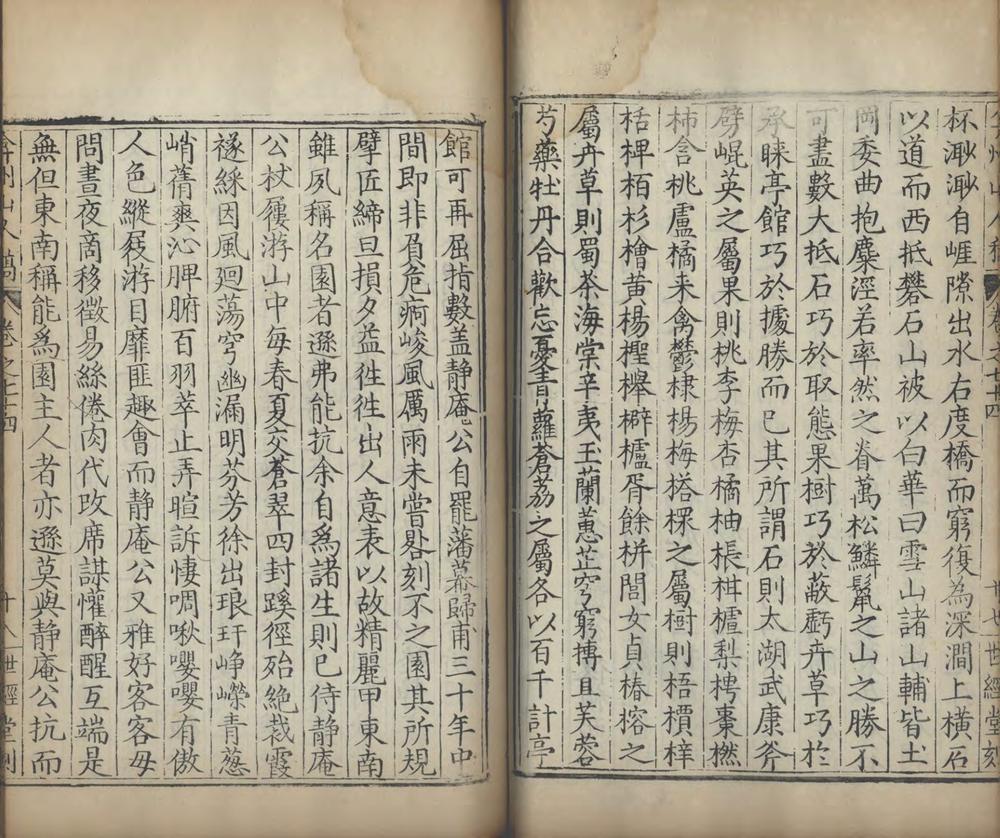 弇州山人稿 卷之七十四 十七 世經堂刻
杯渺渺自崕隙出水右度橋而窮復為深澗上橫石
以道而西抵礬石山被以白華曰雪山諸山輔皆土
岡委曲抱麋涇若率然之脊萬松鱗鬣之山之勝不
可盡數大抵石巧於取態果樹巧於蔽虧卉草巧於
承睞亭館巧於據勝而已其所謂石則太湖武康斧
劈崐英之屬果則桃李梅杏橘柚棖柑櫨梨樗棗橪
柿含桃盧橘来禽鬱棣楊梅榙㮚之屬樹則梧檟梓
栝椑栢杉檜黃楊檉櫸檘櫨胥餘栟閭女貞椿榕之
屬卉草則蜀茶海棠辛夷玉蘭蕙芷穹窮搏且芙蓉
芍藥牡丹合歡忘憂青蘿蒼荔之屬各以百千計亭
館可再屈指數盖静庵公自罷藩幕歸甫三十年中
間即非眉危痾峻風厲雨未嘗晷刻不之園其所規
擘匠締旦損夕益徃徃出人意表以故精麗甲東南
雖夙稱名園者遜弗能抗余自為諸生則已侍静庵
公杖屨游山中毎春夏交蒼翠四封蹊徑殆絶裁霞
襚綵因風廻蕩穹幽漏明芬芳徐出琅玕峥嶸青葱
峭蒨爽沁脾腑百羽萃止弄暄訴悽啁啾嚶嚶有傲
人色縱屐游目靡匪趣會而静庵公又雅好客客毋
問晝夜商移徵易絲倦肉代攺席謀懽醉醒互端是
無但東南稱能為園主人者亦遜莫與静庵公抗而
弇州山人稿 卷之七十四 十八 世經堂刻